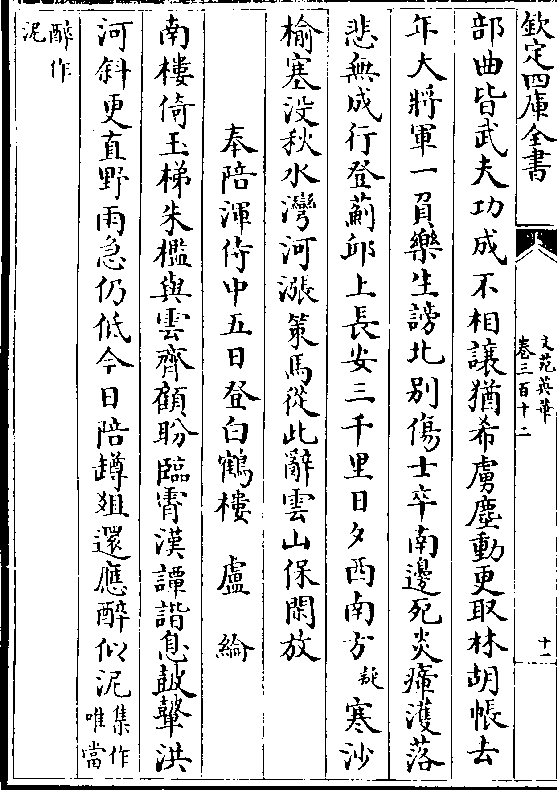 欽定四庫全書
文苑英華
卷三百十二
十一
部曲皆武夫功成不相讓猶希虜塵動更取林胡帳去
年大將軍一負樂生謗北別傷士卒南邊死炎瘴濩落
悲無成行登薊邱上長安三千里日夕西南方疑寒沙
榆塞没秋水灣河漲策馬從此辭雲山保閑放
奉陪渾侍中五日登白鶴樓 盧綸
南樓倚玉梯朱檻與雲齊顧盼臨霄漢譚諧息鼓鼙洪
河斜更直野雨急仍低今日陪罇俎還應醉似泥集作唯當
醉作泥